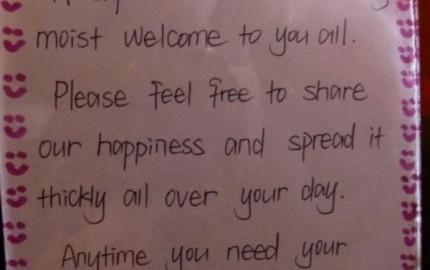 moist welcome to you all.
Please feel free to share
our happiness and spread it
thickly all over your day.
Anytime you need your